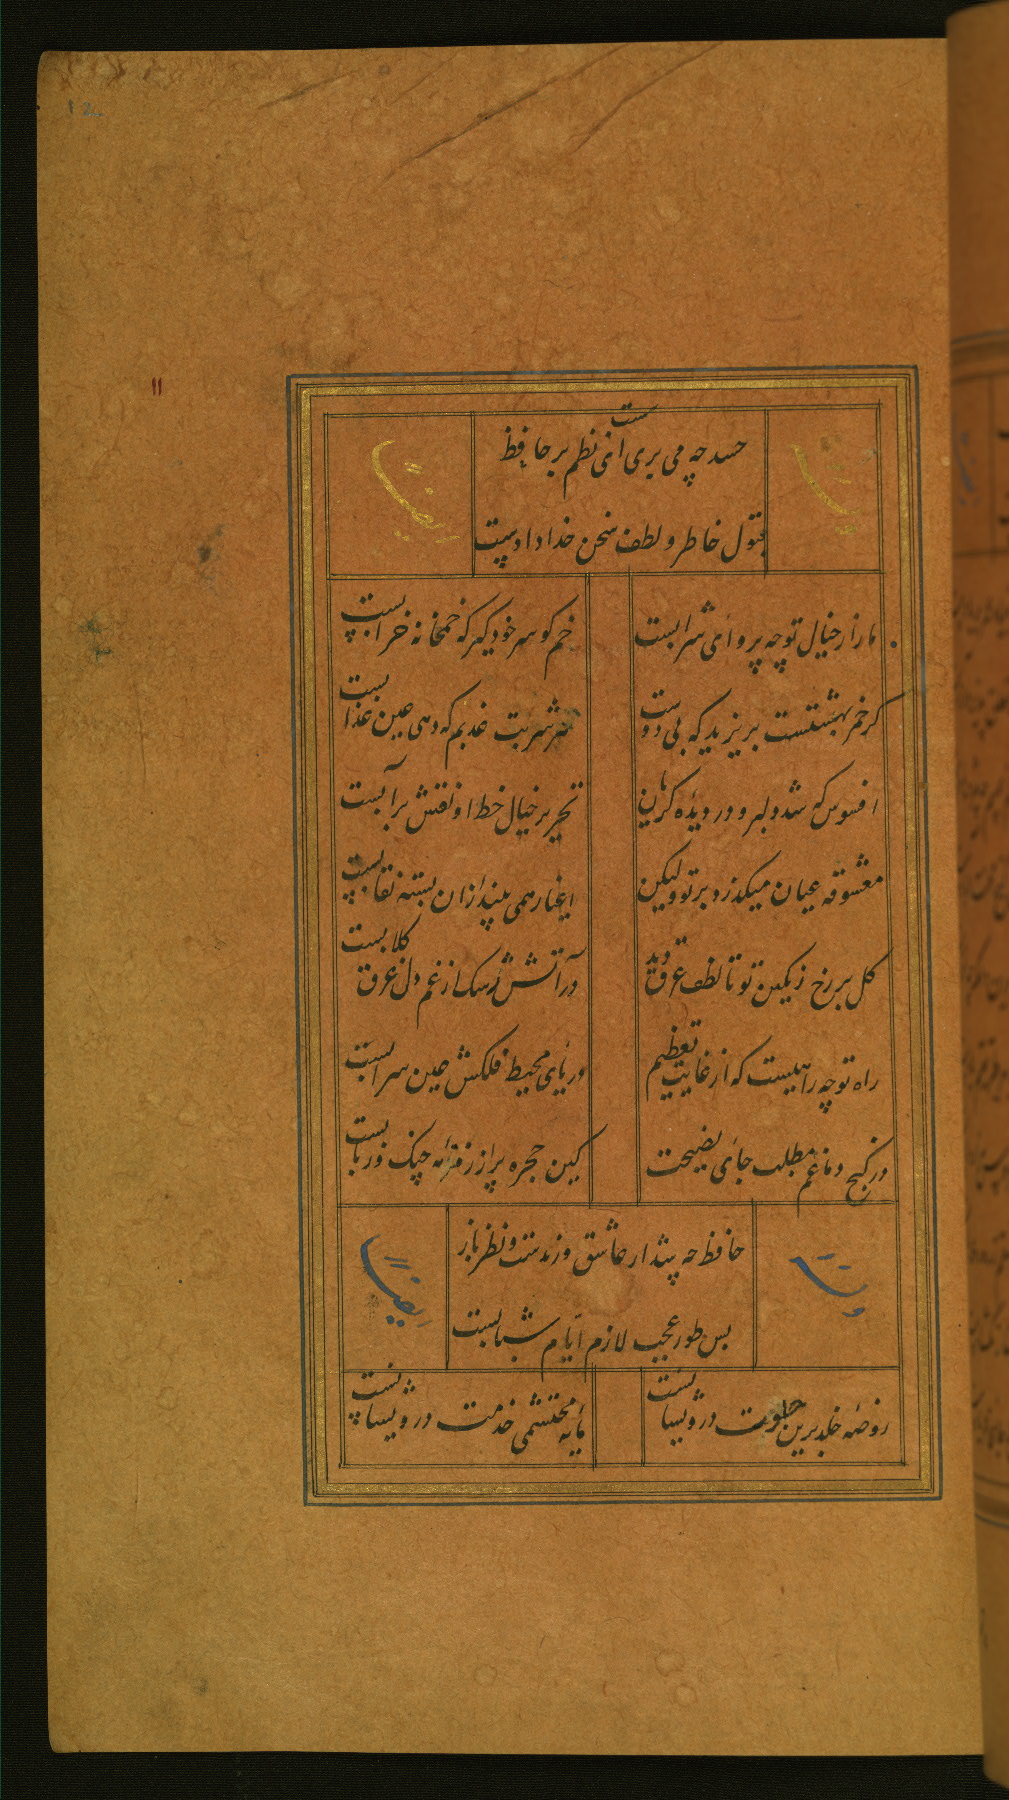 حسد چه می بری ای سست نظم بر حافظ
قبول خاطر و لطف سخن خدادادست
وله
ایضاً
ما را ز خیال تو چه پروای شرابست
خم کو سر خود گیر که خمخانه خرابست
گر خمر بهشتست بریزید که بی دوست
هر شربت عذبم که دهی عین عذابست
افسوس که شد دلبر و در دیده گریان
تحریر خیال خط او نقش بر آبست
معشوقه عیان میگذرد بر تو ولیکن
اغیار همی بیند ازان بسته نقابست
گل بر رخ رنگین تو تا لطف عرق دید
در آتش رشک از غم دل غرق گلابست
راه تو چه راهیست که از غایت تعظیم
دریای محیط فلکش عین سرابست
در کنج دماغم مطلب جای نصیحت
کین حجره پر از زمزمه چنگ و ربابست
حافظ چه شد ار عاشق و رندست و نظر باز
بس طور عجب لازم ایام شبابست
وله
ایضاً
روضه خلد برین خلوت درویشانست
مایه محتشمی خدمت درویشانست
۱۱